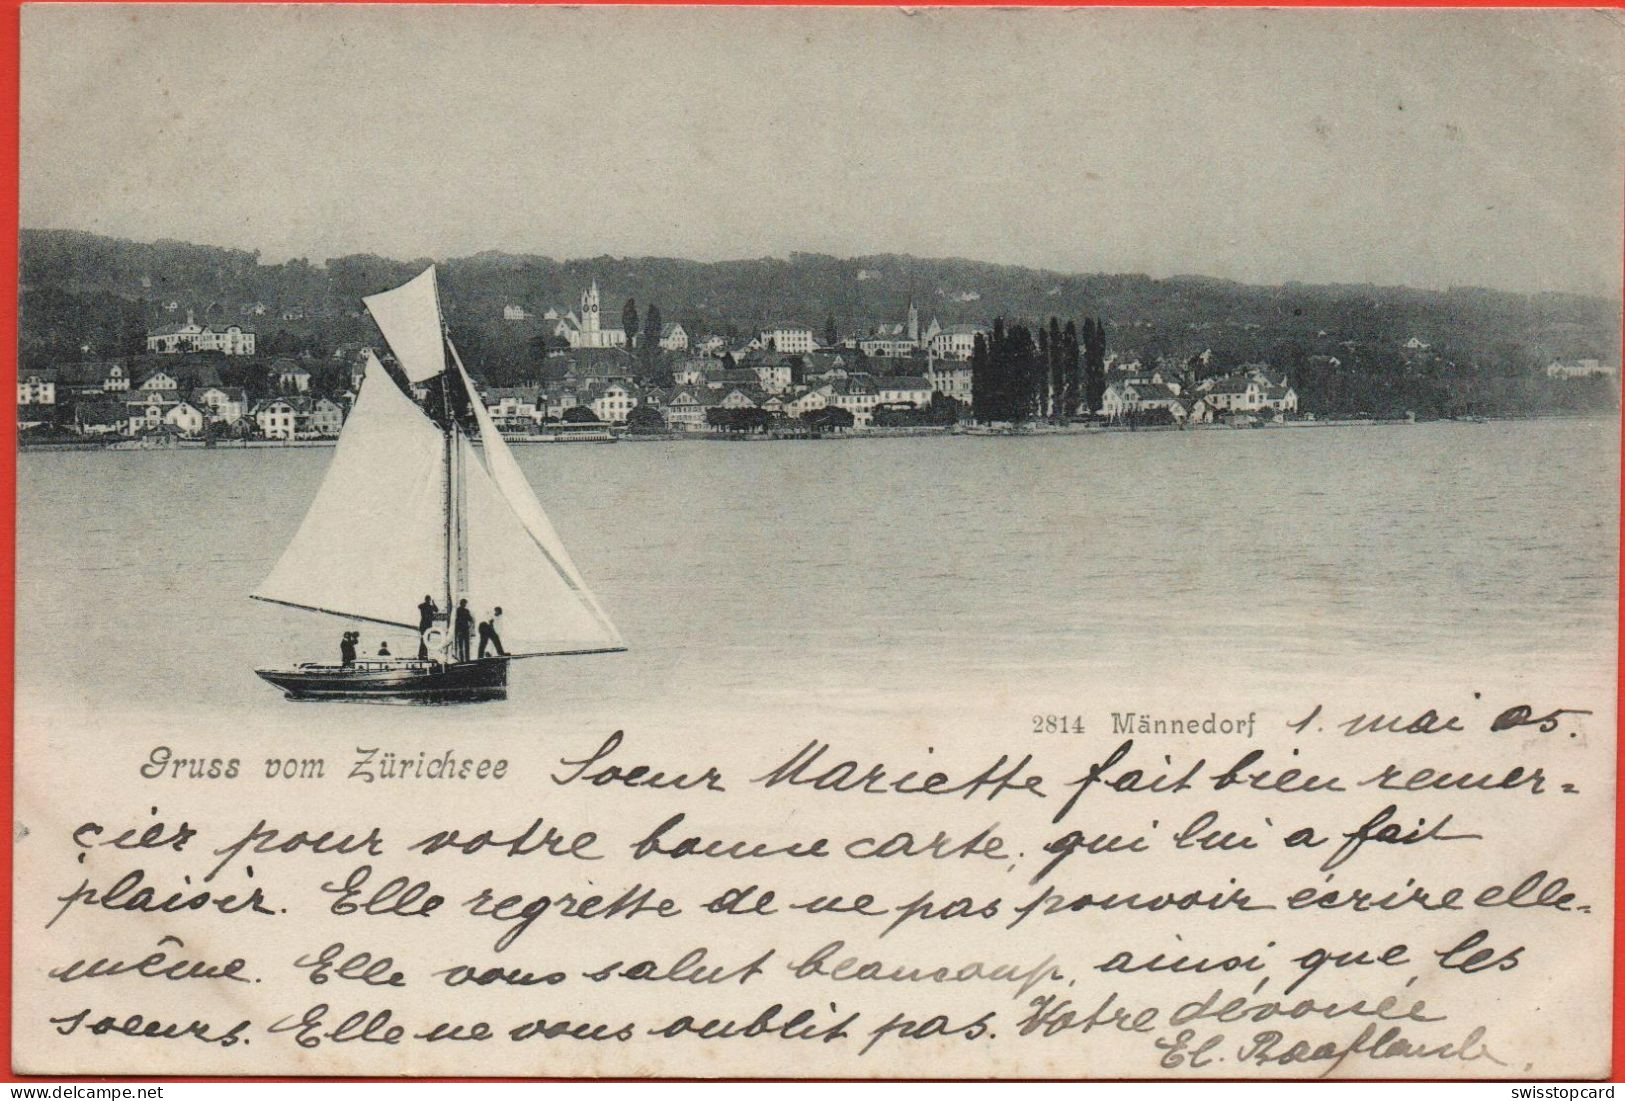 2814 Männedorf 1. mai 05.
Gruss vom Zürichsee
Soeur Mariette fait bien remer=
çier pour votre bonne carte, qui lui a fait
plaisir. Elle regrette de ne pas pouvoir écrire elle-
même. Elle vous salut beaucoup, ainsi, que, les
soeurs. Elle ne vous oublit pas. Votre dévouée
El.
swisstopcard